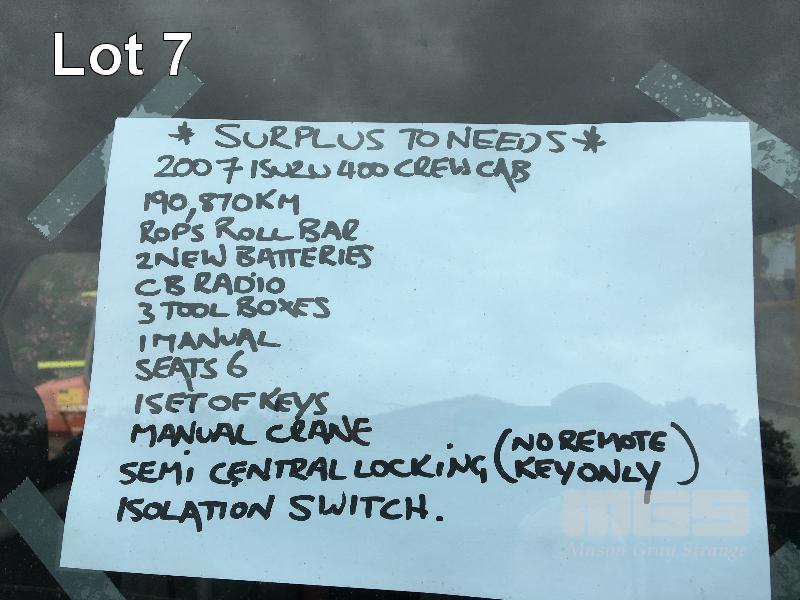 Lot 7
* SURPLUS TO NEEDS *
2007 ISUZU 400 CREW CAB
190,870KM
ROPS ROLL BAR
2 NEW BATTERIES
CB RADIO
3 TOOL BOXES
1 MANUAL
SEATS 6
1 SET OF KEYS
MANUAL CRANE
SEMI CENTRAL LOCKING (NO REMOTE
KEY ONLY)
ISOLATION SWITCH.
MGS
Mason Gray Strange